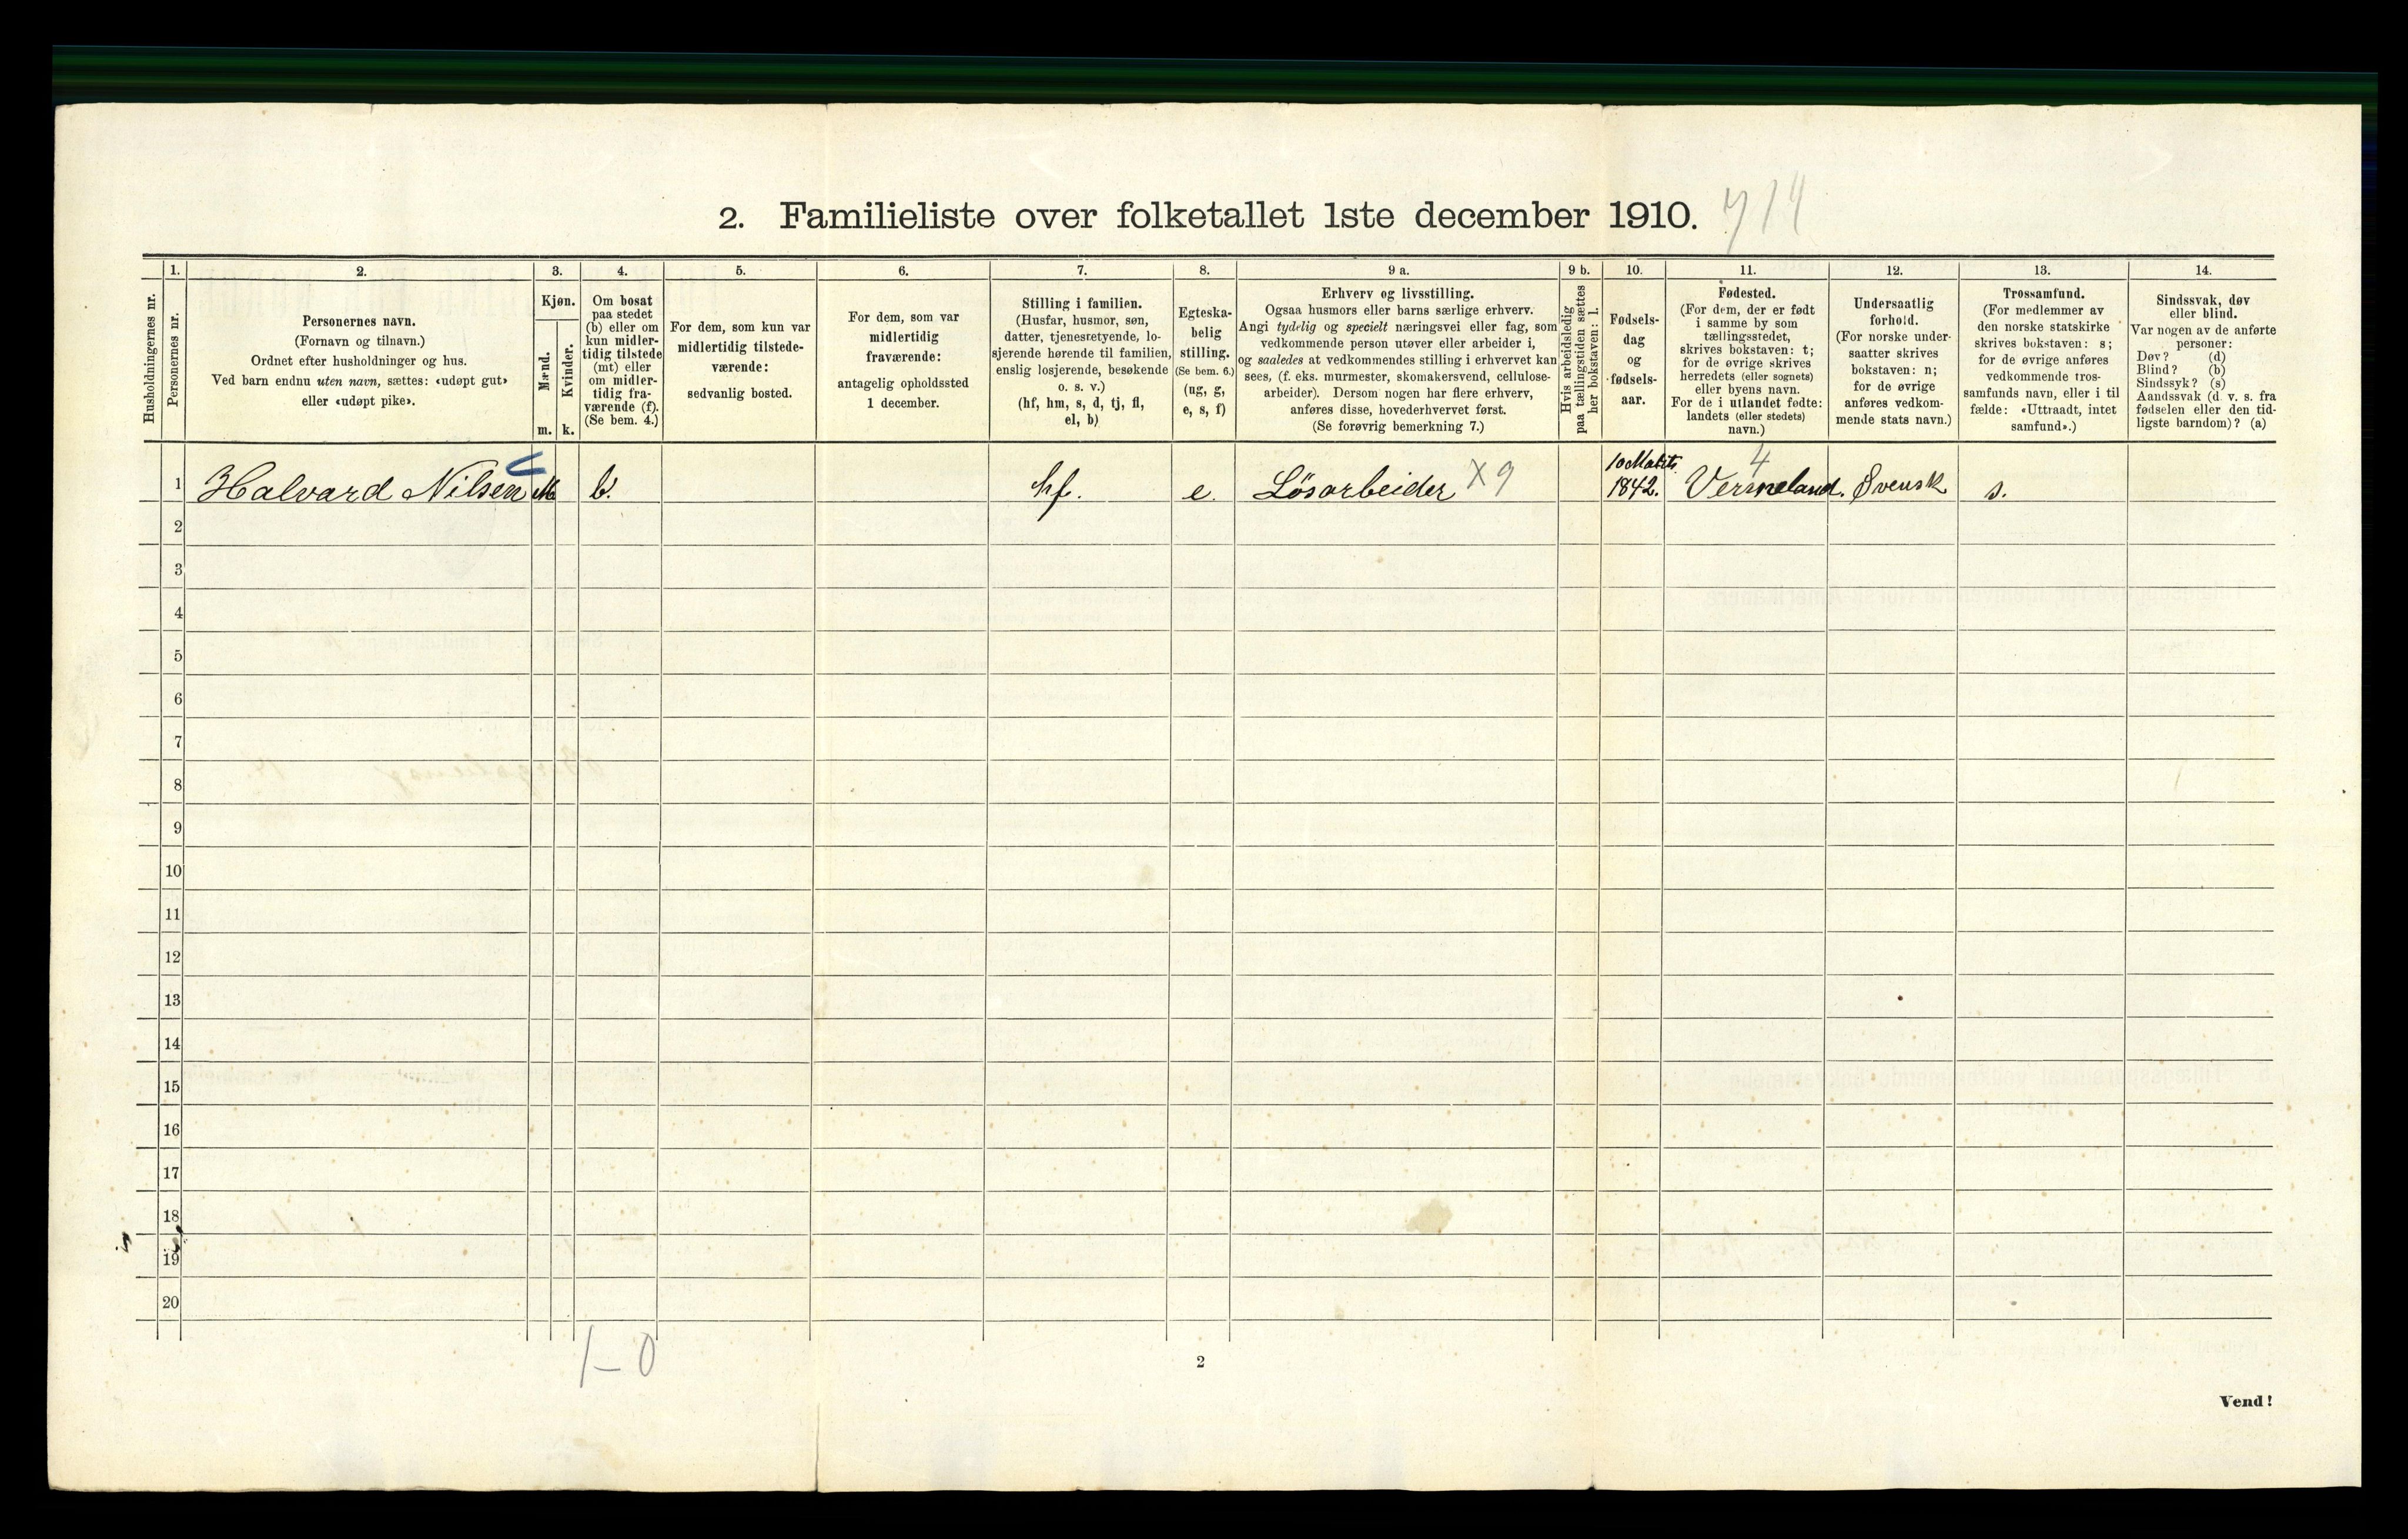 2. Familieliste over folketallet 1ste december 1910. 714
Husholdningernes nr.
1.
Personernes nr.
2.
Personernes navn.
(Fornavn og tilnavn.)
Ordnet efter husholdninger og hus.
Ved barn endnu uten navn, sættes: «udøpt gut»
eller «udøpt pike».
3.
Kjøn.
Mænd.
Kvinder.
m. k.
4.
Om bosat
paa stedet
(b) eller om
kun midler-
tidig tilstede
(mt) eller
om midler-
tidig fra-
værende (f).
(Se bem. 4.)
5.
For dem, som kun var
midlertidig tilstede-
værende:
sedvanlig bosted.
6.
For dem, som var
midlertidig
fraværende:
antagelig opholdssted
1 december.
7.
Stilling i familien.
(Husfar, husmor, søn,
datter, tjenestetyende, lo-
sjerende hørende til familien,
enslig losjerende, besøkende
o. s. v.)
(hf, hm, s, d, tj, fl,
el, b)
8.
Egteska-
belig
stilling.
(Se bem. 6.)
(ug, g,
e, s, f)
9 a.
Erhverv og livsstilling.
Ogsaa husmors eller barns særlige erhverv.
Angi tydelig og specielt næringsvei eller fag, som
vedkommende person utøver eller arbeider i,
og saaledes at vedkommendes stilling i erhvervet kan
sees, (f. eks. murmester, skomakersvend, cellulose-
arbeider). Dersom nogen har flere erhverv,
anføres disse, hovederhvervet først.
(Se forøvrig bemerkning 7.)
9 b.
Hvis arbeidsledig
paa tællingstiden sættes
her bokstaven: l.
10.
Fødsels-
dag
og
fødsels-
aar.
11.
Fødested.
(For dem, der er født
i samme by som
tællingsstedet,
skrives bokstaven: t;
for de øvrige skrives
herredets (eller sognets)
eller byens navn.
For de i utlandet fødte:
landets (eller stedets)
navn.)
12.
Undersaatlig
forhold.
(For norske under-
saatter skrives
bokstaven: n;
for de øvrige
anføres vedkom-
mende stats navn.)
13.
Trossamfund.
(For medlemmer av
den norske statskirke
skrives bokstaven: s;
for de øvrige anføres
vedkommende tros-
samfunds navn, eller i til
fælde: «Uttraadt, intet
samfund».)
14.
Sindssvak, døv
eller blind.
Var nogen av de anførte
personer:
Døv? (d)
Blind? (b)
Sindssyk? (s)
Aandssvak (d. v. s. fra
fødselen eller den tid-
ligste barndom)? (a)
1 Halvard Nilsen M b. hf. e. Løsarbeider X9 1842. 4 Vermeland. Svensk s.
2
3
4
5
6
7
8
9
10
11
12
13
14
15
16
17
18
19
20
1 – 0
2
Vend!